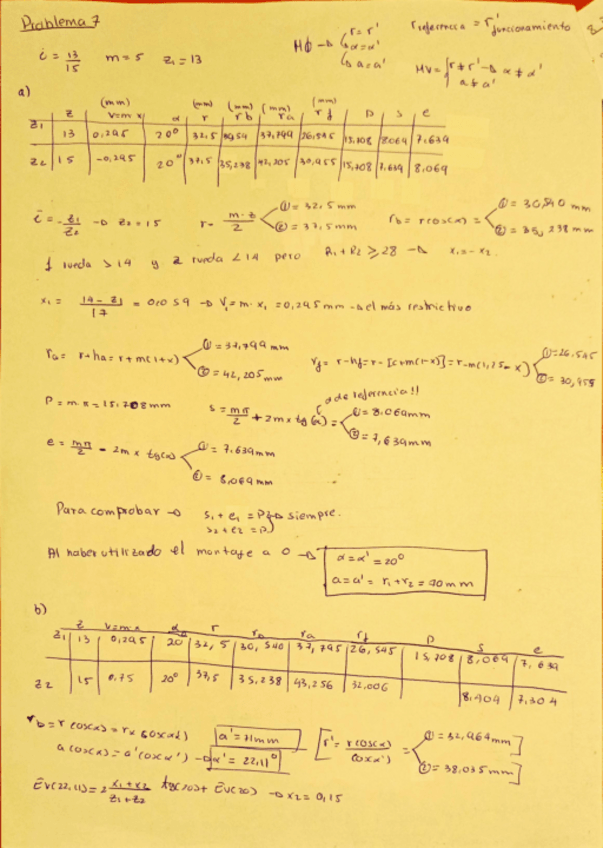 Problema 7
i = 13/15   m = 5   z₁ = 13
MΦ → { r = r'   α = α'   a = a'
r referencia = r' funcionamiento
MV = { r ≠ r' → α ≠ α'   a ≠ a'
a)
z   (mm) v = m·x   α   (mm) r   (mm) rb   (mm) ra   (mm) rf   p   s   e
z₁   13   0,295   20°   32,5   37,799   26,545   15,708   8,064   7,639
z₂   15   -0,295   20°   37,5   35,238   42,205   30,955   15,708   7,639   8,069
i = - z₁/z₂ → z₂ = 15   r = m·z/2 { ① = 32,5 mm   ② = 37,5 mm   rb = r cos(α) = { ① = 30,540 mm   ② = 35,238 mm
1 rueda > 14 y 2 rueda < 14 pero   z₁ + z₂ ≥ 28 →   x₁ = - x₂
x₁ = 14 - z₁/17 = 0,059 → v₁ = m·x₁ = 0,295 mm → el más restrictivo
ra = r + ha = r + m(1+x) { ① = 37,799 mm   ② = 42,205 mm   rf = r - hf = r - [c + m(1-x)] = r - m(1,25 - x) { ① = 26,545   ② = 30,955
p = m·π = 15,708 mm   s = mπ/2 + 2mx tg(α) = { ① = 8,069 mm   ② = 7,639 mm
α de referencia!!
e = mπ/2 - 2mx tg(α) { ① = 7,639 mm   ② = 8,069 mm
Para comprobar → s₁ + e₁ = p } → siempre.
s₂ + e₂ = p
Al haber utilizado el montaje a 0 → α = α' = 20°
a = a' = r₁ + r₂ = 70 mm
b)
z   v = m·x   α   r   rb   ra   rf   p   s   e
z₁   13   0,295   20   32,5   30,540   37,795   26,545   15,708   8,069   7,639
z₂   15   0,75   20°   37,5   35,238   43,256   32,006   8,404   7,304
rb = r cos(α) = r' cos(α')   a' = 71 mm   [ r' = r cos(α)/cos(α') = { ① = 32,964 mm   ② = 38,035 mm ]
a cos(α) = a' cos(α') → α' = 22,11°
Ev(22,11) = 2 x₁+x₂/z₁+z₂ tg(20) + Ev(20) → x₂ = 0,15